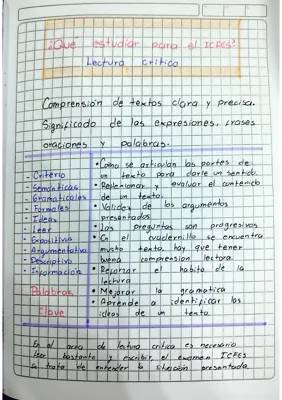 ¿Qué estudiar para el ICFES?
Lectura crítica
Comprensión de textos clara y precisa.
Significado de las expresiones, frases
oraciones y palabras.
- Criterio
- Semánticas
- Gramaticales
- Formales
- Ideas
- Leer
- Expositiva
- Argumentativa
- Descriptiva
- Información
Palabras
Clave
• Cómo se articulan las partes de
un texto para darle un sentido.
• Reflexionar y evaluar el contenido
de un texto.
• Validez de los argumentos
presentados
• Las preguntas son progresivas
• En el cuadernillo se encuentra
mucho texto hay que tener
buena comprension lectora.
• Reforzar el habito de la
lectura
• Mejorar la gramatica
• Aprende a identificar las
ideas de un texto.
En el area de lectura critica es necesario
leer bastante y escribir, el examen ICFES
se trata de entender la situación presentada